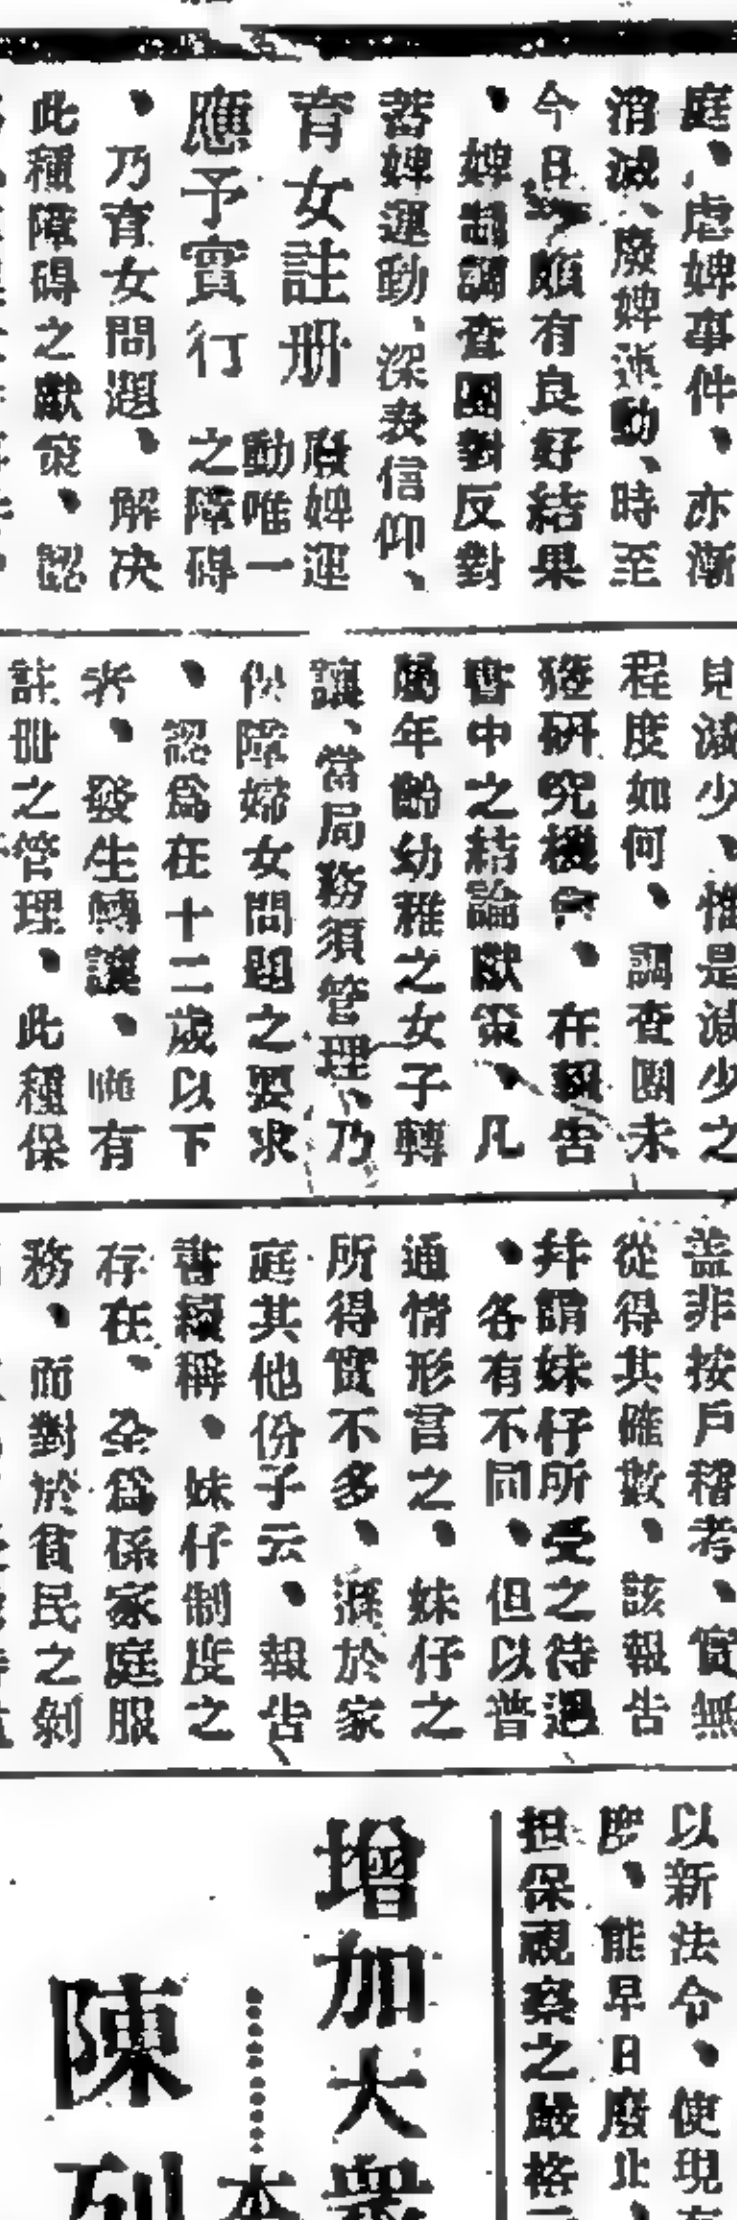 庭、虐婢事件、亦漸
消滅、廢婢運動、時至
今日、頗有良好結果
、婢制調查團對反對
蓄婢運動、深表信仰、
育女註册
應予實行
廢婢運
動唯一
之障碍
、乃育女問題、解决
此種障碍之獻策、認
見減少、惟是減少之
程度如何、調查團未
經研究機會、在報告
書中之結論獻策、凡
屬年齡幼稚之女子轉
讓、當局務須管理、乃
保障婦女問題之要求
、認爲在十二歲以下
者、發生轉讓、應有
註册之管理、此種保
盖非按戶稽考、實無
從得其確數、該報告
并謂妹仔所受之待遇
、各有不同、但以普
通情形言之、妹仔之
所得實不多、源於家
庭其他份子云、報告
書續稱、妹仔制度之
存在、全爲係家庭服
務、而對於貧民之剝
以新法令、使現有
度、能早日廢止、
担保視察之嚴格
增加大衆
本
陳列